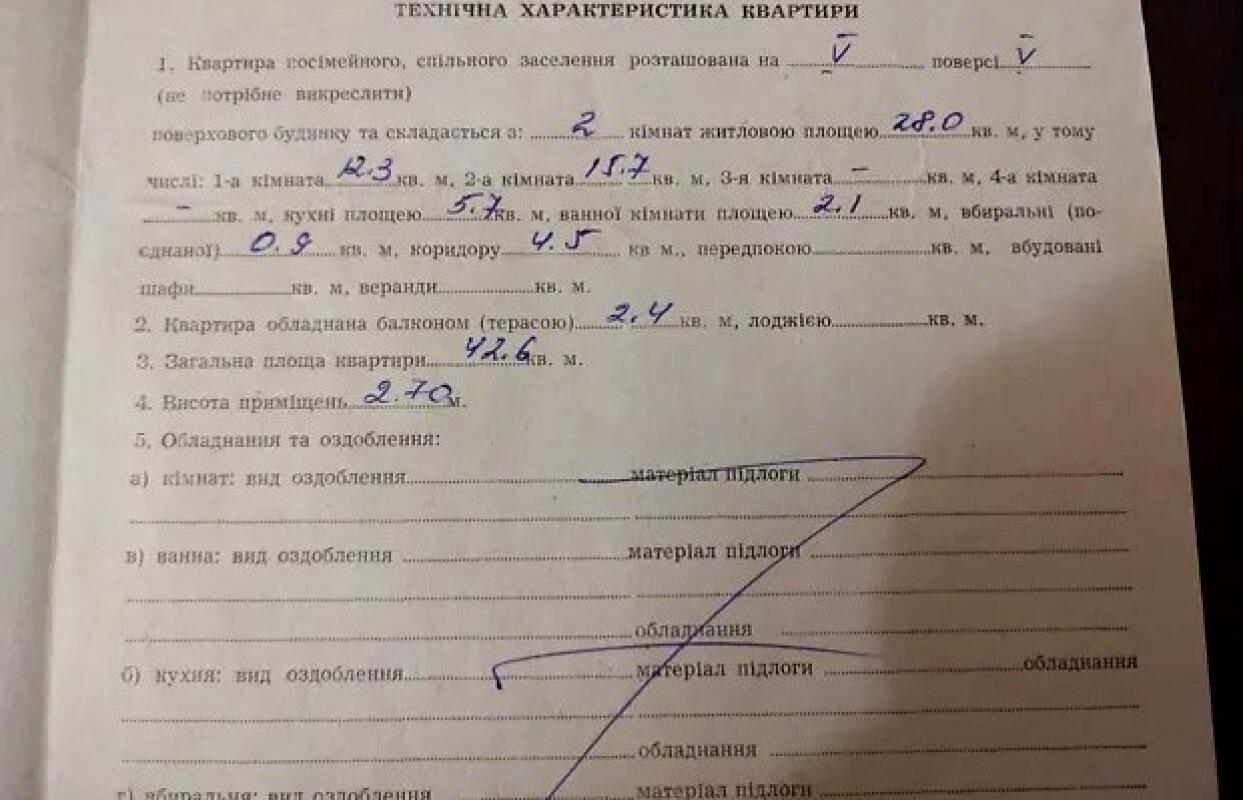 ТЕХНІЧНА ХАРАКТЕРИСТИКА КВАРТИРИ
1. Квартира посімейного, спільного заселення розташована на V поверсі V
(не потрібне викреслити)
поверхового будинку та складається з: 2 кімнат житловою площею 28.0 кв. м, у тому
числі: 1-а кімната 12.3 кв. м, 2-а кімната 15.7 кв. м, 3-я кімната — кв. м, 4-а кімната
— кв. м, кухні площею 5.7 кв. м, ванної кімнати площею 2.1 кв. м, вбиральні (по-
єднаної) 0.9 кв. м, коридору 4.5 кв м., передпокою кв. м, вбудовані
шафи кв. м, веранди кв. м.
2. Квартира обладнана балконом (терасою) 2.4 кв. м, лоджією кв. м.
3. Загальна площа квартири 42.6 кв. м.
4. Висота приміщень 2.70 м.
5. Обладнання та оздоблення:
а) кімнат: вид оздоблення матеріал підлоги
в) ванна: вид оздоблення матеріал підлоги
обладнання
б) кухня: вид оздоблення матеріал підлоги обладнання
обладнання
г) вбиральня: вид оздоблення матеріал підлоги